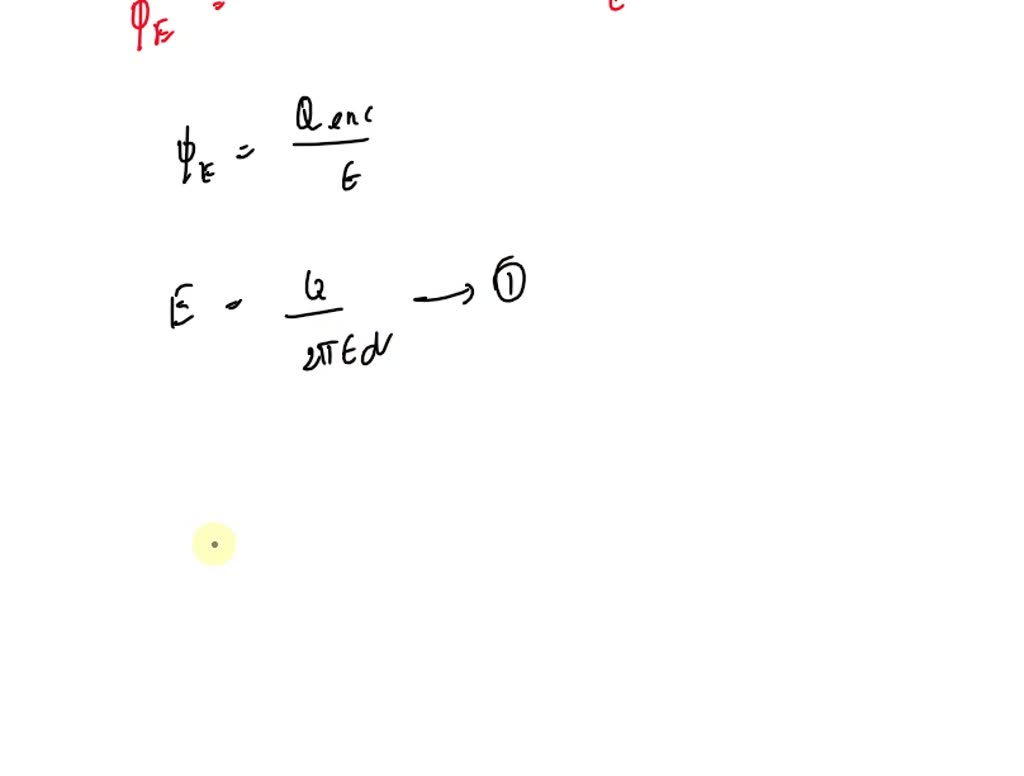 φE =
ϕE = Q enc / ε
E = Q / 2πεdr → ①